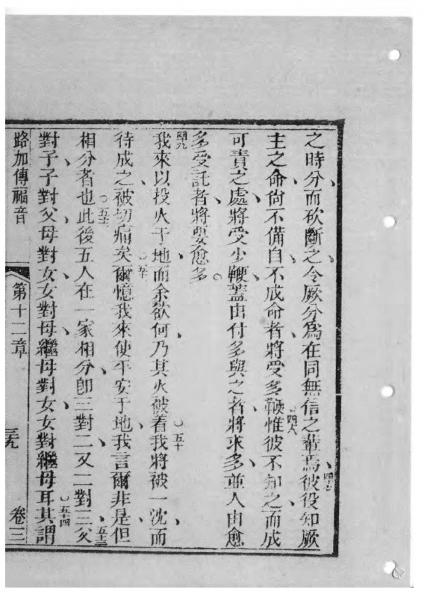 之時分而砍斷之令厥分爲在同無信之輩焉彼役知厥
主之命尙不備自不成命者將受多鞭惟彼不知之而成
可責之處將受少鞭蓋由付多與之者將來多並人由愈
多受託者將要愈多
我來以投火于地而余欲何乃其火被着我將被一沈而
待成之被切痛矣爾憶我來使平安于地我言爾非是但
相分者也此後五人在一家相分卽三對二又二對三父
對子子對父母對女女對母繼母對女女對繼母耳其謂
路加傳福音
第十二章
卷三